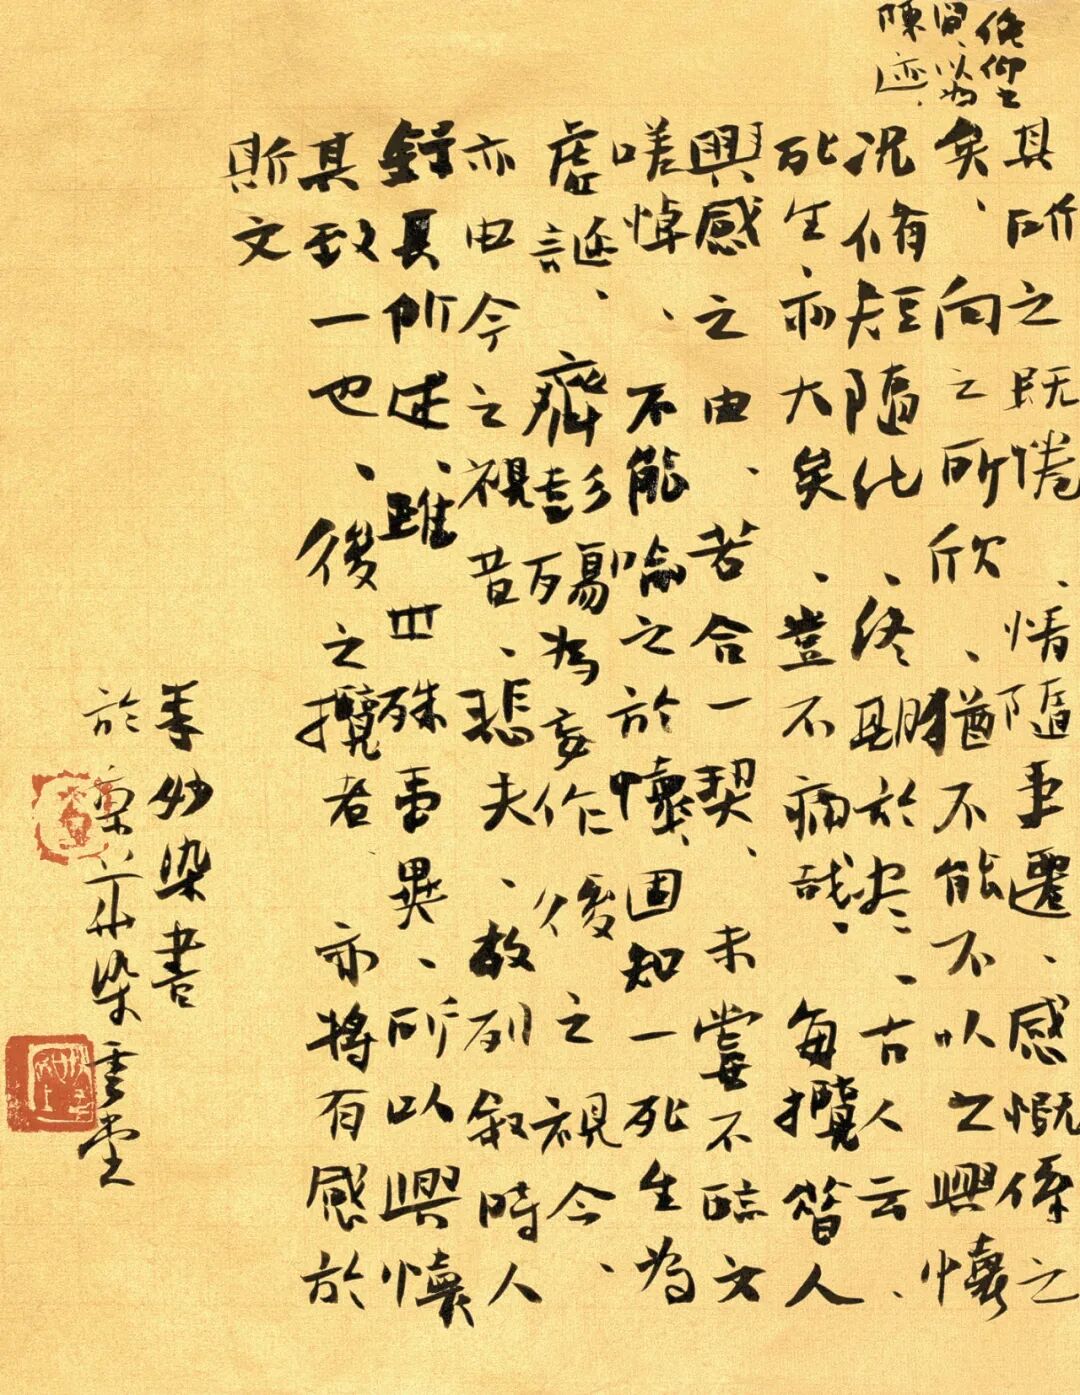 俛仰之
間、以為
陳迹、
其所之既惓、情隨事遷、感慨係之
矣、向之所欣、猶不能不以之興懷
况脩短隨化、終期於尽、古人云、
死生亦大矣、豈不痛哉、每攬昔人
興感之由、若合一契、未嘗不臨文
嗟悼、不能喻之於懷、固知一死生為
虛誕、齊彭殤為妄作後之視今、
亦由今之視昔、悲夫、故列叙時人
録其所述、雖世殊事異、所以興懷
其致一也、後之攬者亦將有感於
斯文
妙染書
於染雲堂